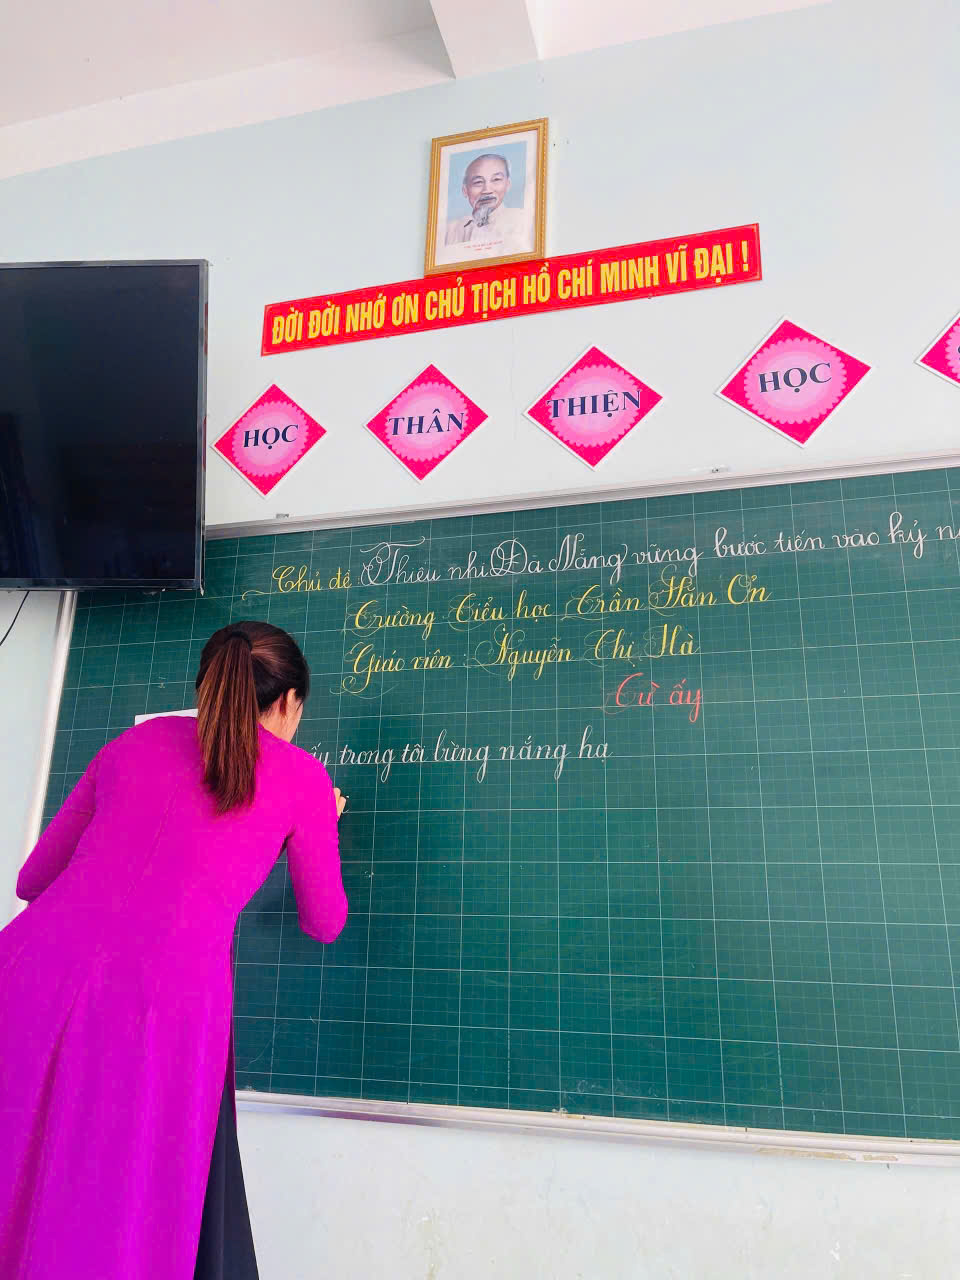 ĐỜI ĐỜI NHỚ ƠN CHỦ TỊCH HỒ CHÍ MINH VĨ ĐẠI !
HỌC THÂN THIỆN HỌC
Chủ đề: Thiếu nhi Đà Nẵng vững bước tiến vào kỷ
Trường Tiểu học Trần Hằn Ơn
Giáo viên: Nguyễn Thị Hà
Từ ấy
ấy trong tôi bừng nắng hạ